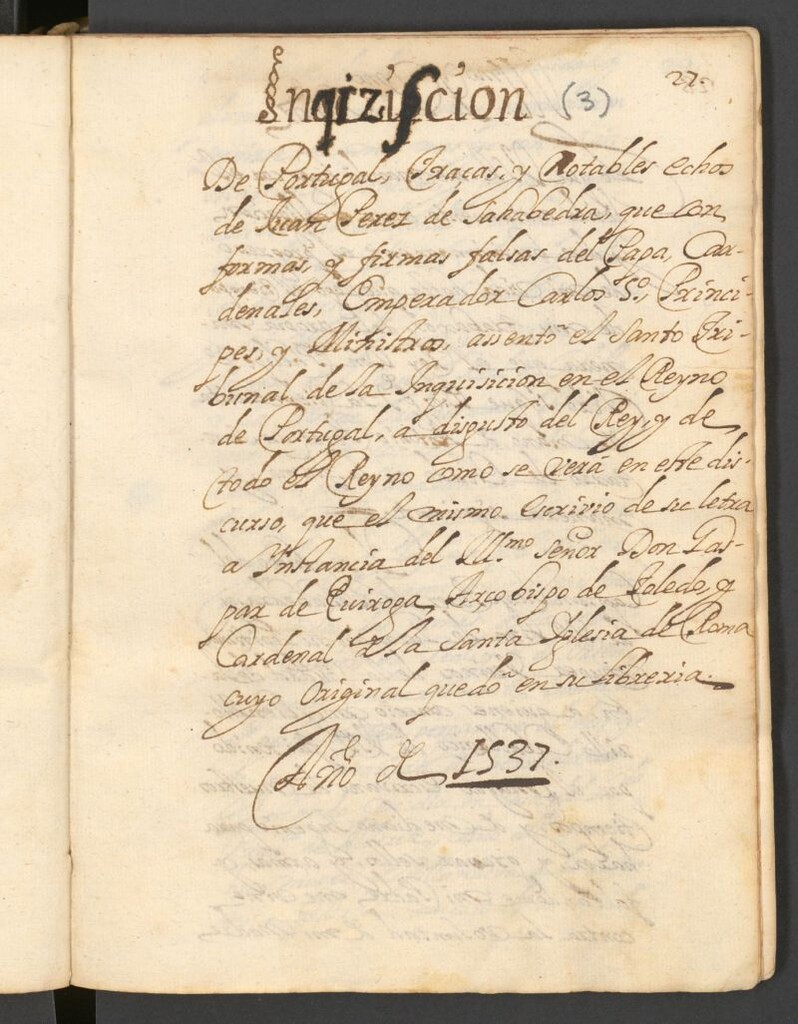 27.
Inqiziscion (3)
De Portugal, Traças, y Notables echos
de Juan Perez de Sahabedra, que con
formas, y firmas falsas del Papa, Car-
denales, Emperador Carlos 5º, Princi-
pes, y Ministros, assento el Santo Tri-
bunal de la Inquisicion en el Reyno
de Portugal, a disgusto del Rey, y de
todo el Reyno como se verá en este dis-
curso, que el mismo Escrivio de su letra
a Instancia del Ill.mo Señor Don Gas-
par de Quiroga Arçobispo de Toledo, y
Cardenal de la Santa Iglesia de Roma
cuyo Original quedó en su libreria.
Año de 1537.